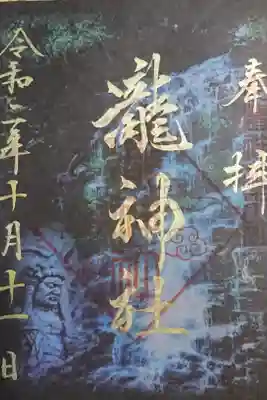 奉拝
瀧神社
令和二年十月十一日